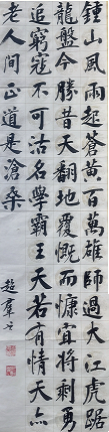 鍾山風雨起蒼黃百萬雄師過大江虎踞
龍盤今勝昔天翻地覆慨而慷宜將剩勇
追窮寇不可沽名學霸王天若有情天亦
老人間正道是滄桑
趙羣